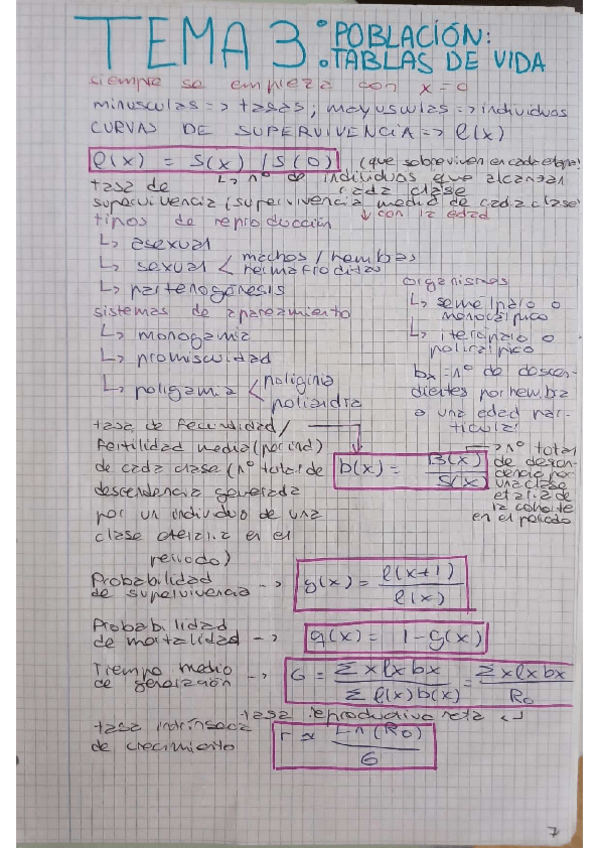 TEMA 3: POBLACIÓN:
TABLAS DE VIDA
siempre se empieza con x=0
minusculas => tasas; mayusculas => individuos
CURVAS DE SUPERVIVENCIA => l(x)
l(x) = S(x) / S(0) (que sobreviven en cada etapa)
tasa de ↳ nº de individuos que alcanzan
cada clase
supervivencia; supervivencia media de cada clase
tipos de reproducción ↓ con la edad
↳ asexual
↳ sexual < machos / hembras
hermafroditas
↳ partenogénesis
organismos
↳ semelpáro o
monocárpico
↳ iteropáro o
policárpico
sistemas de apareamiento
↳ monogamia
↳ promiscuidad
↳ poligamia < poliginia
poliandria
bx = nº de descen-
dientes por hembra
a una edad par-
ticular
tasa de fecundidad /
fertilidad media (por ind)
de cada clase (nº total de
descendencia generada
por un individuo de una
clase etaria en el
periodo)
b(x) = B(x) / S(x)
→ nº total
de descen-
dencia por
una clase
etaria de
la cohorte
en el periodo
Probabilidad
de supervivencia --> g(x) = l(x+1) / l(x)
Probabilidad
de mortalidad --> q(x) = 1 - g(x)
Tiempo medio
de generación --> G = Σ x lx bx / Σ l(x) b(x) = Σ x lx bx / R0
tasa reproductiva neta ↲
tasa intrínseca
de crecimiento
r ≈ Ln(R0) / G
7